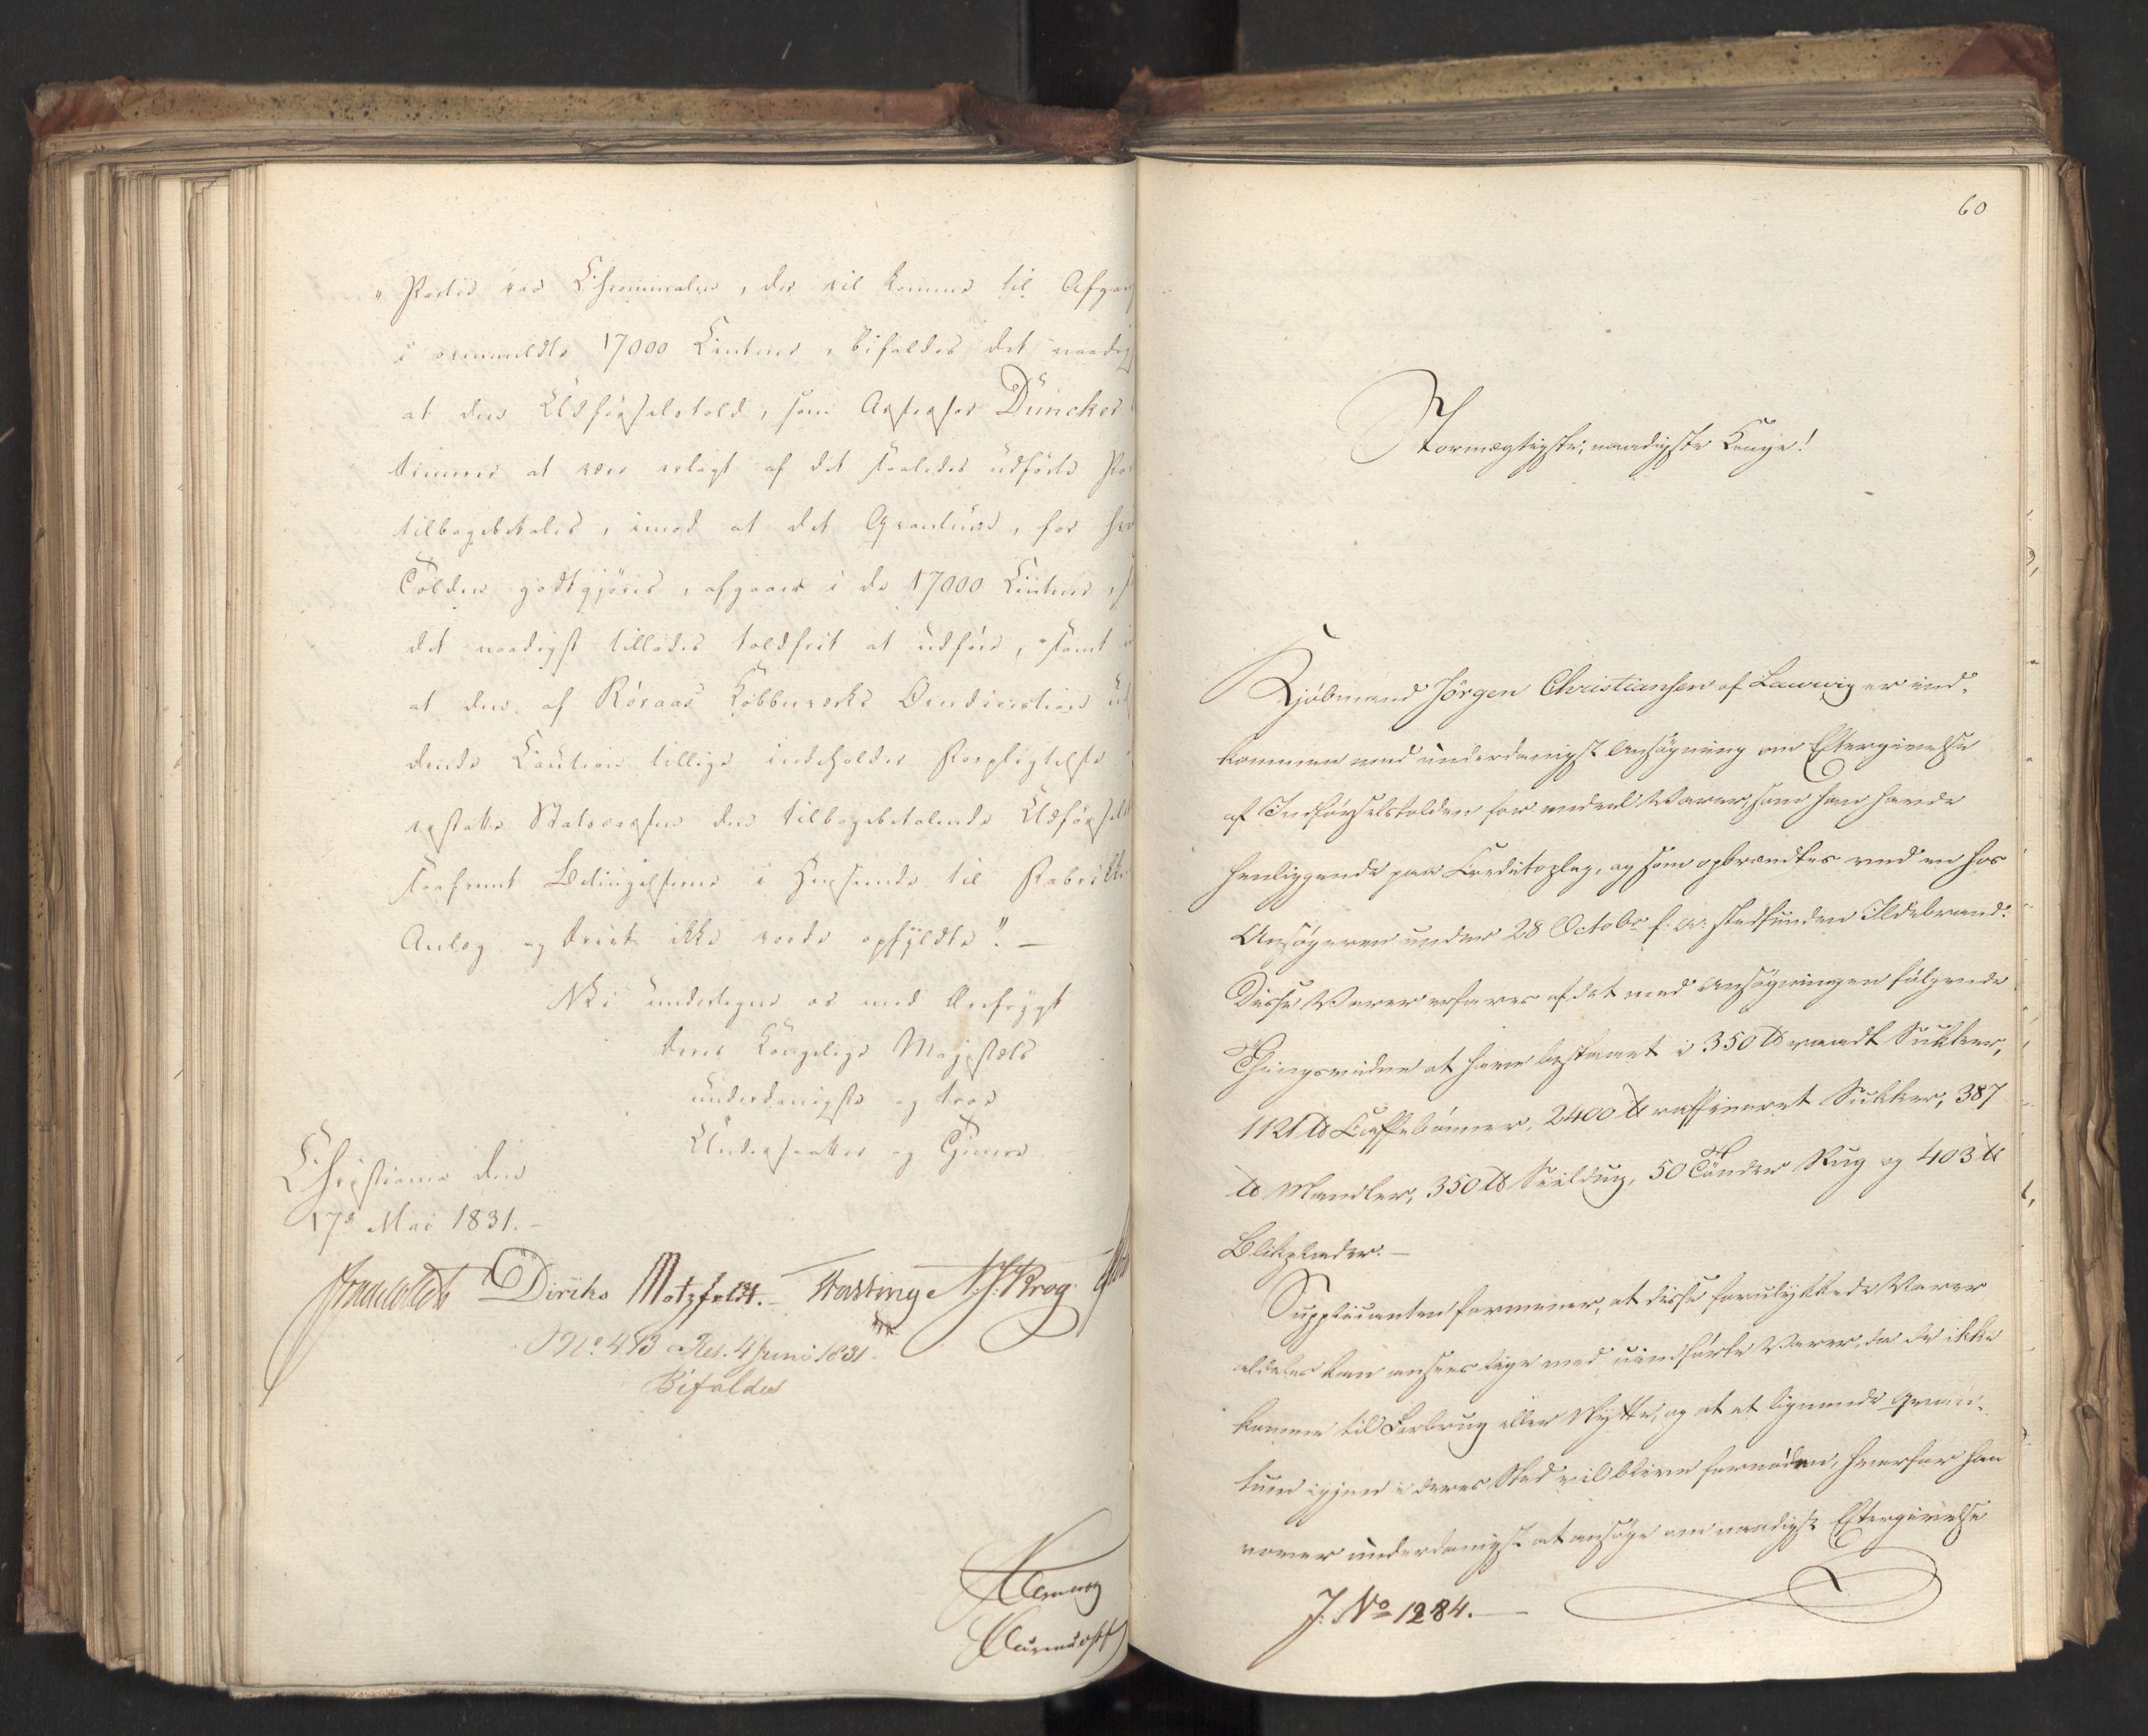 „Partie raa Chrommalm, der vil komme til Afgang
i ovenmeldte 17000 Centner, bifaldes det naadigst
at den Udförselstold, som Assessor Düncker
kunne at være erlagt af det saaledes udförte
tilbagebetales, imod at det Qvantum, for
Tolden godtgjöres, afgaaer i de 17000 Centner,
det naadigst tillades toldfrit at udföre, samt
at den af Röraas Kobberværks Ondirection
dende Caution tillige indeholder Forpligtelse
erstatte Statscassen den tilbagebetalende Udförsels
saafremt Betingelserne i Henseende til Fabrikkens
Anlæg og Drivt ikke vorde opfyldte”. —
Vi undertegne os med Ærefrygt
Deres Kongelige Majestæts
underdanigste og troe
Undersaatter og Tjenere
Christiania den
17de Mai 1831. -
Diriks Motzfeldt. Fasting N. J. Krog.
No. 443 Res. 4 Juni 1831.
Bifaldes
60
Stormægtigste, naadigste Konge!
Kjöbmand Jörgen Christiansen af Laurvig er ind-
kommen med underdanigst Ansögning om Eftergivelse
af Indförselstolden for endeel Varer, som han havde
henliggende paa Creditoplag, og som opbrændtes ved en hos
Ansögeren under 28 Octobr f. A. stedfunden Ildebrand.
Disse Varer erfares af det med Ansögningen fölgende
Thingsvidne at have bestaaet i 350 ℔ raadt Sukker,
1121 ℔ Caffebönner, 2400 ℔ raffineret Sukker, 387
℔ Mandler, 350 ℔ Seildug, 50 Tönder Rug og 403 ℔
Blikplader. —
Supplicanten formener, at disse forulykkede Varer
aldeles kan ansees lige med uindförte Varer, da de ikke
komme til Forbrug eller Nytte, og at et lignende Qvan-
tum igjen i deres Sted vil blive fornöden, hvorfor han
vover underdanigst at ansöge om naadigst Eftergivelse
J. No 1284. —